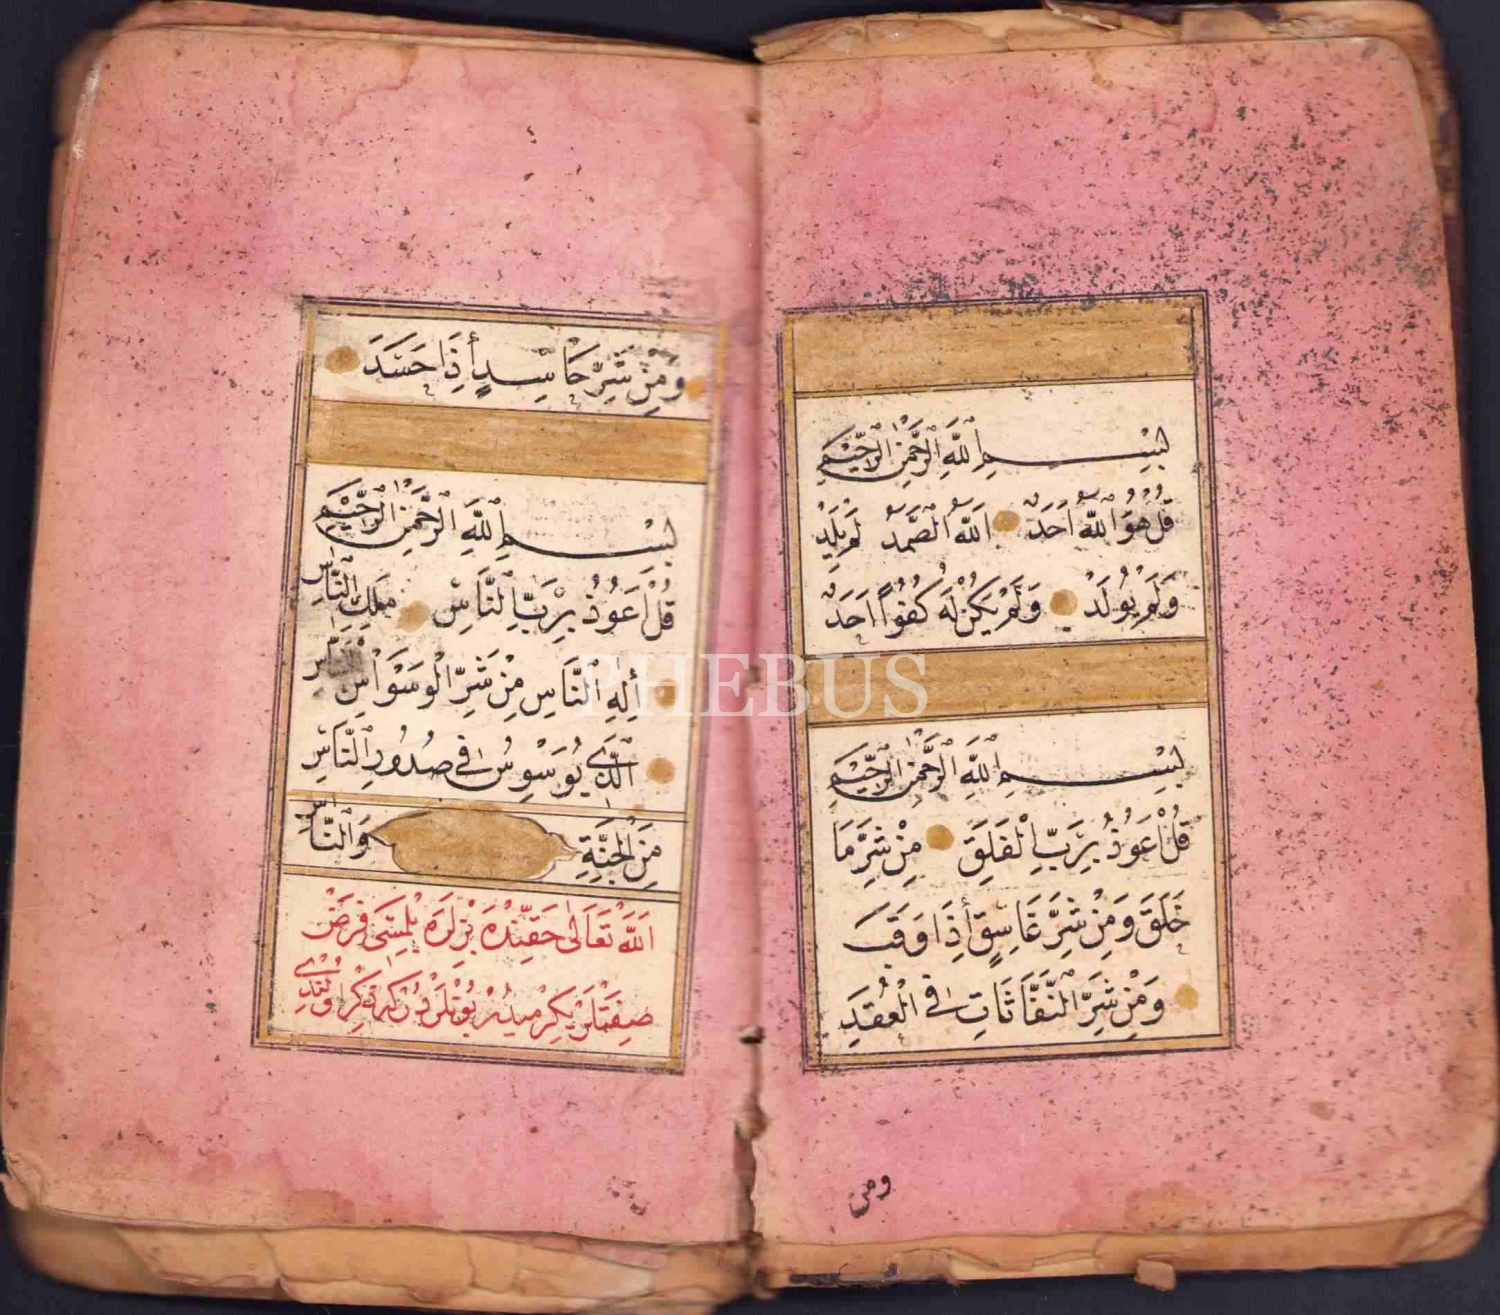 بِسْمِ اللَّهِ الرَّحْمَنِ الرَّحِيمِ
قُلْ هُوَ اللَّهُ أَحَدٌ اللَّهُ الصَّمَدُ لَمْ يَلِدْ
وَلَمْ يُولَدْ وَلَمْ يَكُنْ لَهُ كُفُوًا أَحَدٌ
بِسْمِ اللَّهِ الرَّحْمَنِ الرَّحِيمِ
قُلْ أَعُوذُ بِرَبِّ الْفَلَقِ مِنْ شَرِّ مَا
خَلَقَ وَمِنْ شَرِّ غَاسِقٍ إِذَا وَقَبَ
وَمِنْ شَرِّ النَّفَّاثَاتِ فِي الْعُقَدِ
ومن
وَمِنْ شَرِّ حَاسِدٍ إِذَا حَسَدَ
بِسْمِ اللَّهِ الرَّحْمَنِ الرَّحِيمِ
قُلْ أَعُوذُ بِرَبِّ النَّاسِ مَلِكِ النَّاسِ
إِلَهِ النَّاسِ مِنْ شَرِّ الْوَسْوَاسِ الْخَنَّاسِ
الَّذِي يُوَسْوِسُ فِي صُدُورِ النَّاسِ
مِنَ الْجِنَّةِ وَالنَّاسِ
اللَّه تَعَالَى حَقِّنْدَه بِزْلَرَه بِلْمَسِي فَرْض
صِفَتْلَر يِكِرْمِيدُرْ بُونْلَرْدُرْ كِه ذِكْر اولُنْدِي
PHEBUS